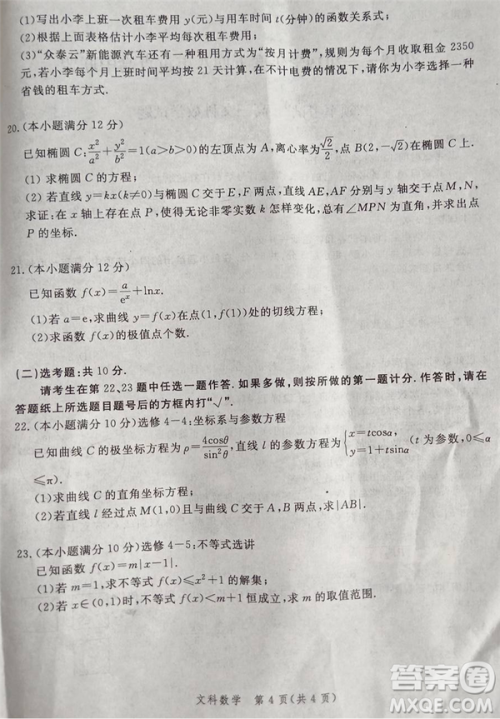 (1)写出小李上班一次租车费用 y(元)与用车时间 t(分钟)的函数关系式;
(2)根据上面表格估计小李平均每次租车费用;
(3)“众泰云”新能源汽车还有一种租用方式为“按月计费”,规则为每个月收取租金 2350
元,若小李每个月上班时间平均按 21 天计算,在不计电费的情况下,请你为小李选择一种
省钱的租车方式.
20.(本小题满分 12 分)
已知椭圆 C: x²/a² + y²/b² = 1(a>b>0)的左顶点为 A,离心率为 √2/2,点 B(2,-√2)在椭圆 C 上.
(1)求椭圆 C 的方程;
(2)若直线 y=kx(k≠0)与椭圆 C 交于 E,F 两点,直线 AE,AF 分别与 y 轴交于点 M,N,
求证:在 x 轴上存在点 P,使得无论非零实数 k 怎样变化,总有∠MPN 为直角,并求出点
P 的坐标.
21.(本小题满分 12 分)
已知函数 f(x)= a/eˣ +lnx.
(1)若 a=e,求曲线 y=f(x)在点(1,f(1))处的切线方程;
(2)求函数 f(x)的极值点个数.
(二)选考题:共 10 分.
请考生在第 22、23 题中任选一题作答.如果多做,则按所做的第一题计分.作答时,请在
答题纸上所选题目题号后的方框内打“√”.
22.(本小题满分 10 分)选修 4-4:坐标系与参数方程
已知曲线 C 的极坐标方程为 ρ= 4cosθ/sin²θ ,直线 l 的参数方程为 {x=tcosα, y=1+tsinα (t 为参数).
(1)求曲线 C 的直角坐标方程;
(2)若直线 l 经过点 M(1,0)且与曲线 C 交于 A,B 两点,求|AB|.
23.(本小题满分 10 分)选修 4-5:不等式选讲
已知函数 f(x)=m|x-1|.
(1)若 m=1,求不等式 f(x)≤x²+1 的解集;
(2)若 x∈(0,1)时,不等式 f(x)<m+1 恒成立,求 m 的取值范围.
文科数学 第 4 页(共 4 页)
答案圈
MXQE.COM